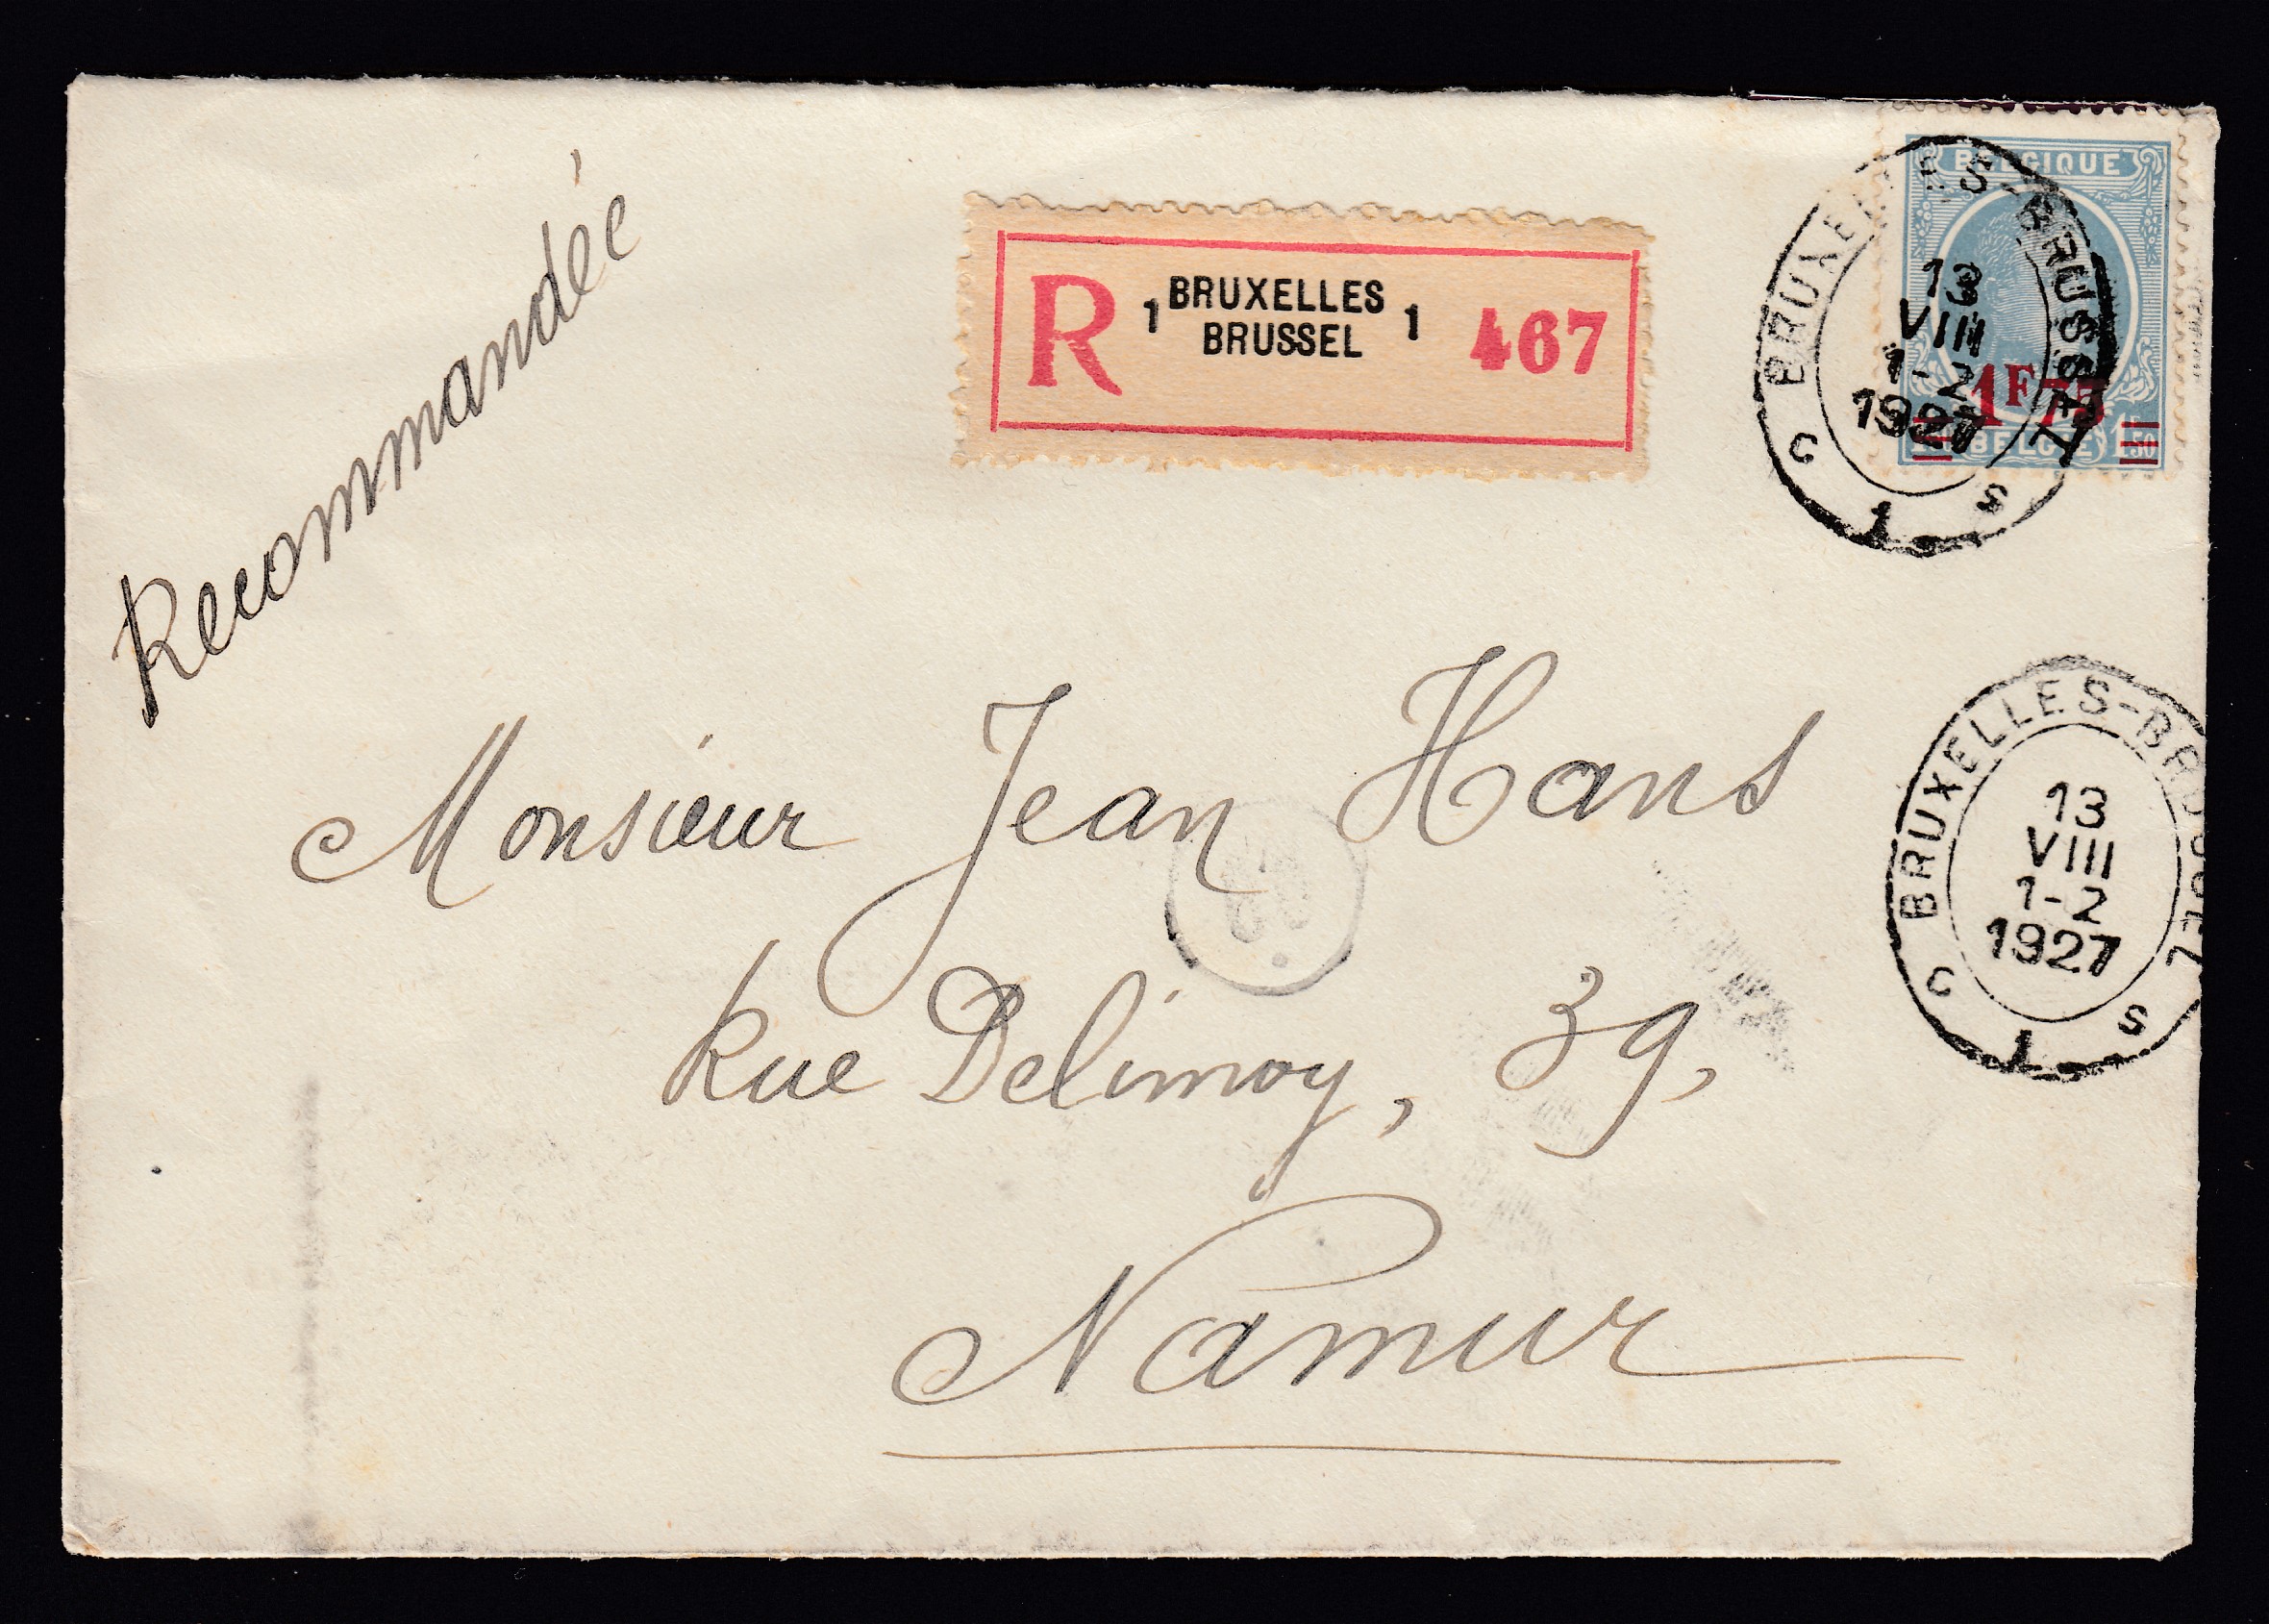 Recommandée
R 1 BRUXELLES 1 467
BRUSSEL
BELGIQUE
1F75
BELGIË 1F50
BRUXELLES-BRUSSEL
13
VIII
1-2
1927
C 1 S
Monsieur Jean Hans
Rue Delimoy, 39,
Namur
BRUXELLES-BRUSSEL
13
VIII
1-2
1927
C 1 S